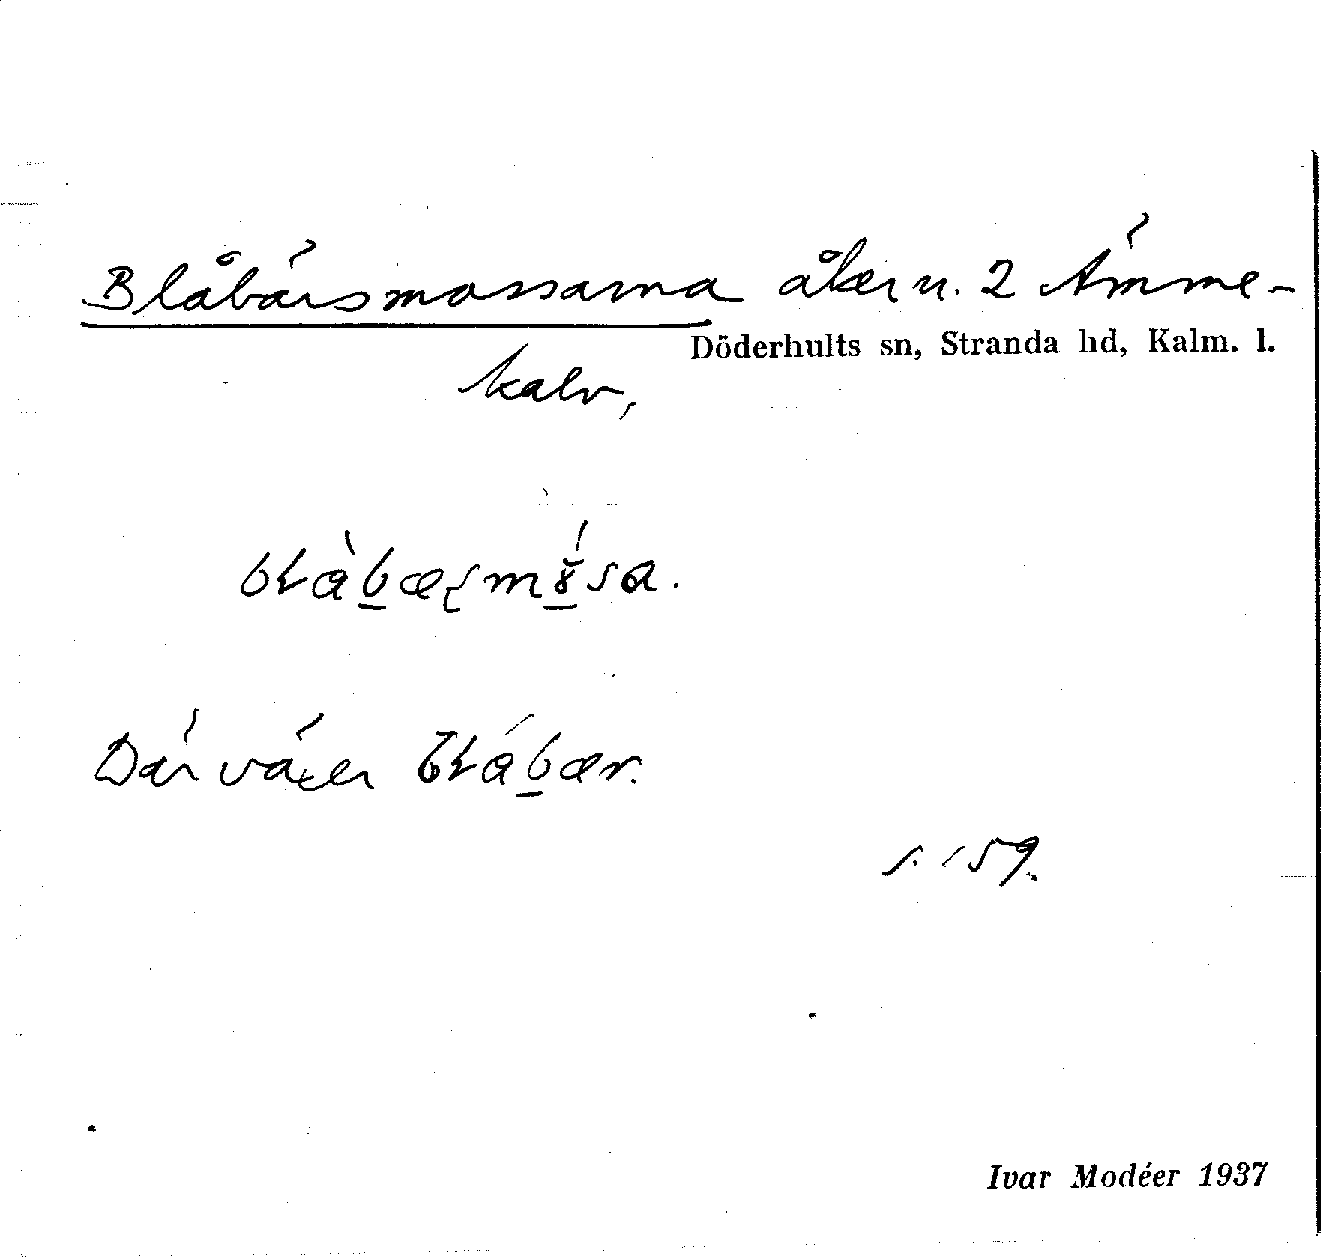 Blåbärsmossarna åker n. 2 Ämme-
Döderhults sn, Stranda hd, Kalm. l.
kalv,
Där växer
s. 159.
Ivar Modéer 1937